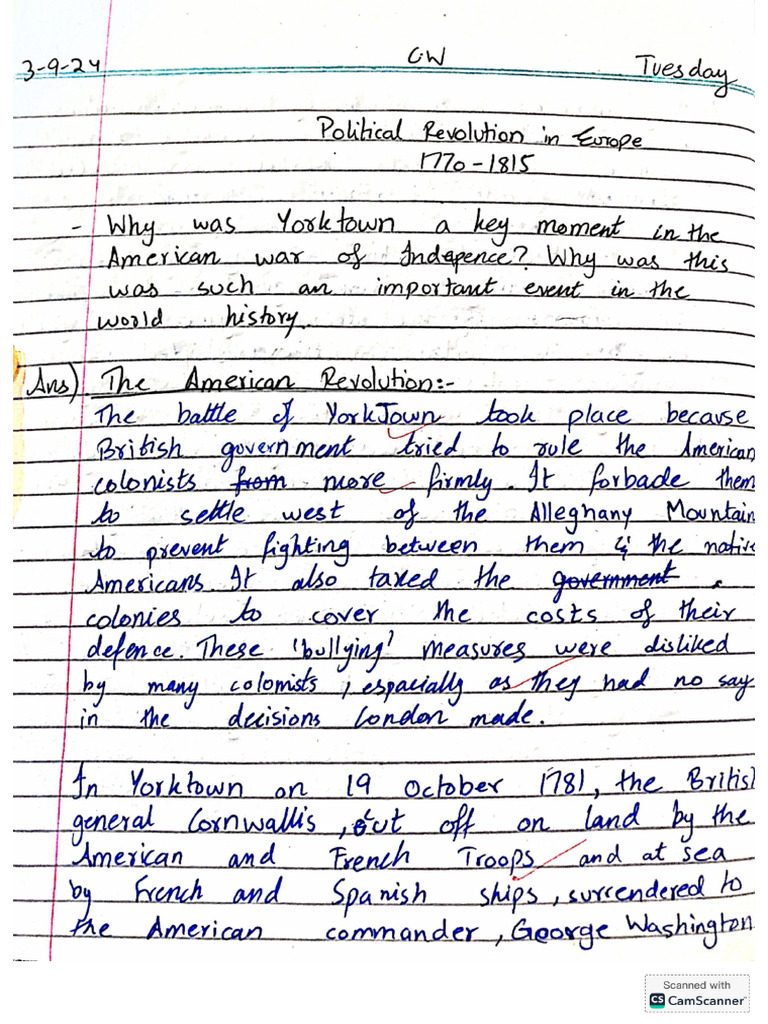 3-9-24 CW Tuesday
Political Revolution in Europe
1770-1815
- Why was Yorktown a key moment in the
American war of Indepence? Why was this
was such an important event in the
world history.
Ans) The American Revolution:-
The battle of YorkTown took place because
British government tried to rule the American
colonists from more firmly. It forbade them
to settle west of the Alleghany Mountain
to prevent fighting between them & the native
Americans. It also taxed the government
colonies to cover the costs of their
defence. These 'bullying' measures were disliked
by many colonists, espacially as they had no say
in the decisions London made.
In Yorktown on 19 October 1781, the British
general Cornwallis, cut off on land by the
American and French Troops and at sea
by French and Spanish ships, surrendered to
the American commander, George Washington
Scanned with
CS CamScanner